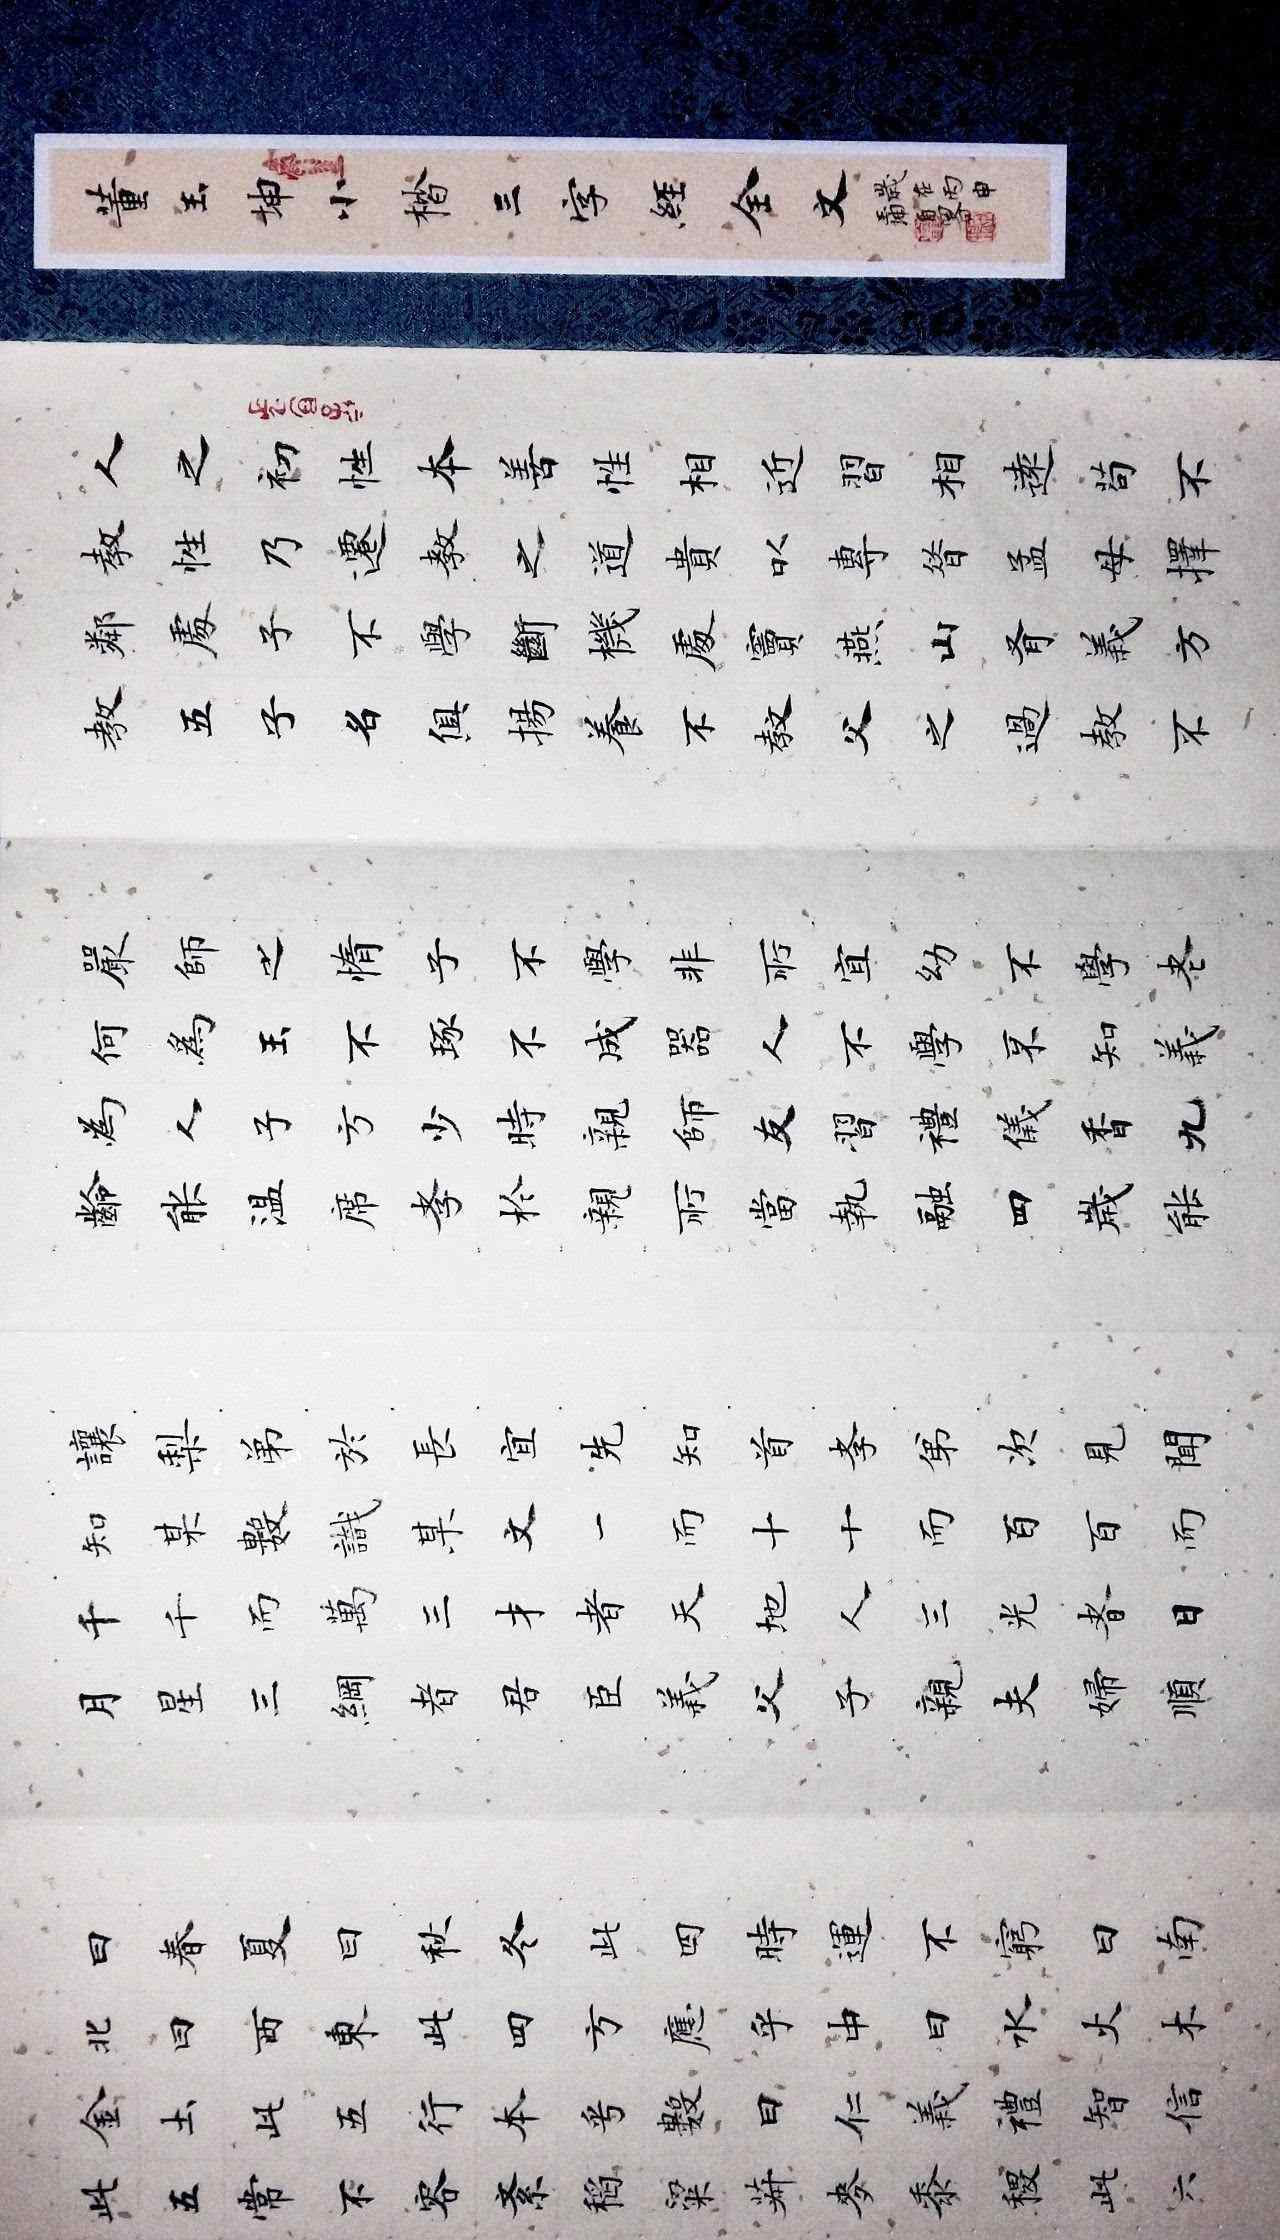 董玉坤小楷三字經全文
歲在丙申
人之初性本善性相近習相遠苟不
教性乃遷教之道貴以專昔孟母擇
鄰處子不學斷機處竇燕山有義方
教五子名俱揚養不教父之過教不
嚴師之惰子不學非所宜幼不學老
何為玉不琢不成器人不學不知義
為人子方少時親師友習禮儀香九
齡能溫席孝於親所當執融四歲能
讓梨弟於長宜先知首孝弟次見聞
知某數識某文一而十十而百百而
千千而萬三才者天地人三光者日
月星三綱者君臣義父子親夫婦順
曰春夏曰秋冬此四時運不窮曰南
北曰西東此四方應乎中曰水火木
金土此五行本乎數曰仁義禮智信
此五常不容紊稻粱菽麥黍稷此六